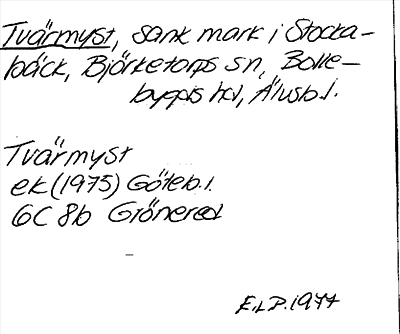 Tvärmyst, sank mark i Stocka-
bäck, Björketorps sn, Bolle-
bygds hd, Älvsb.l.
Tvärmyst
ek (1975) Göteb.l.
6C 8b Grönered
E.L.P. 1977